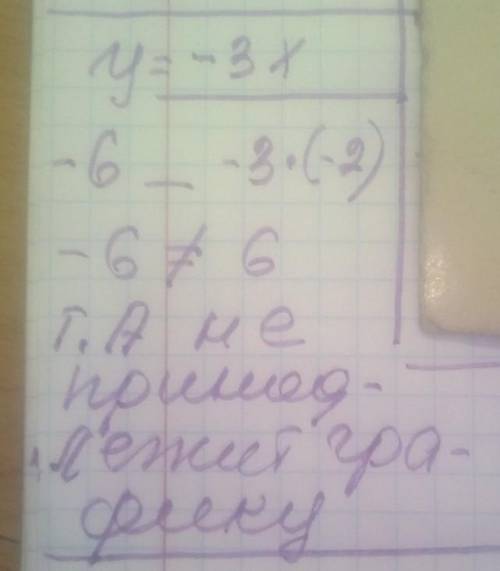 y = -3x
-6 _ -3·(-2)
-6 ≠ 6
т. А не
принад-
лежит гра-
фику